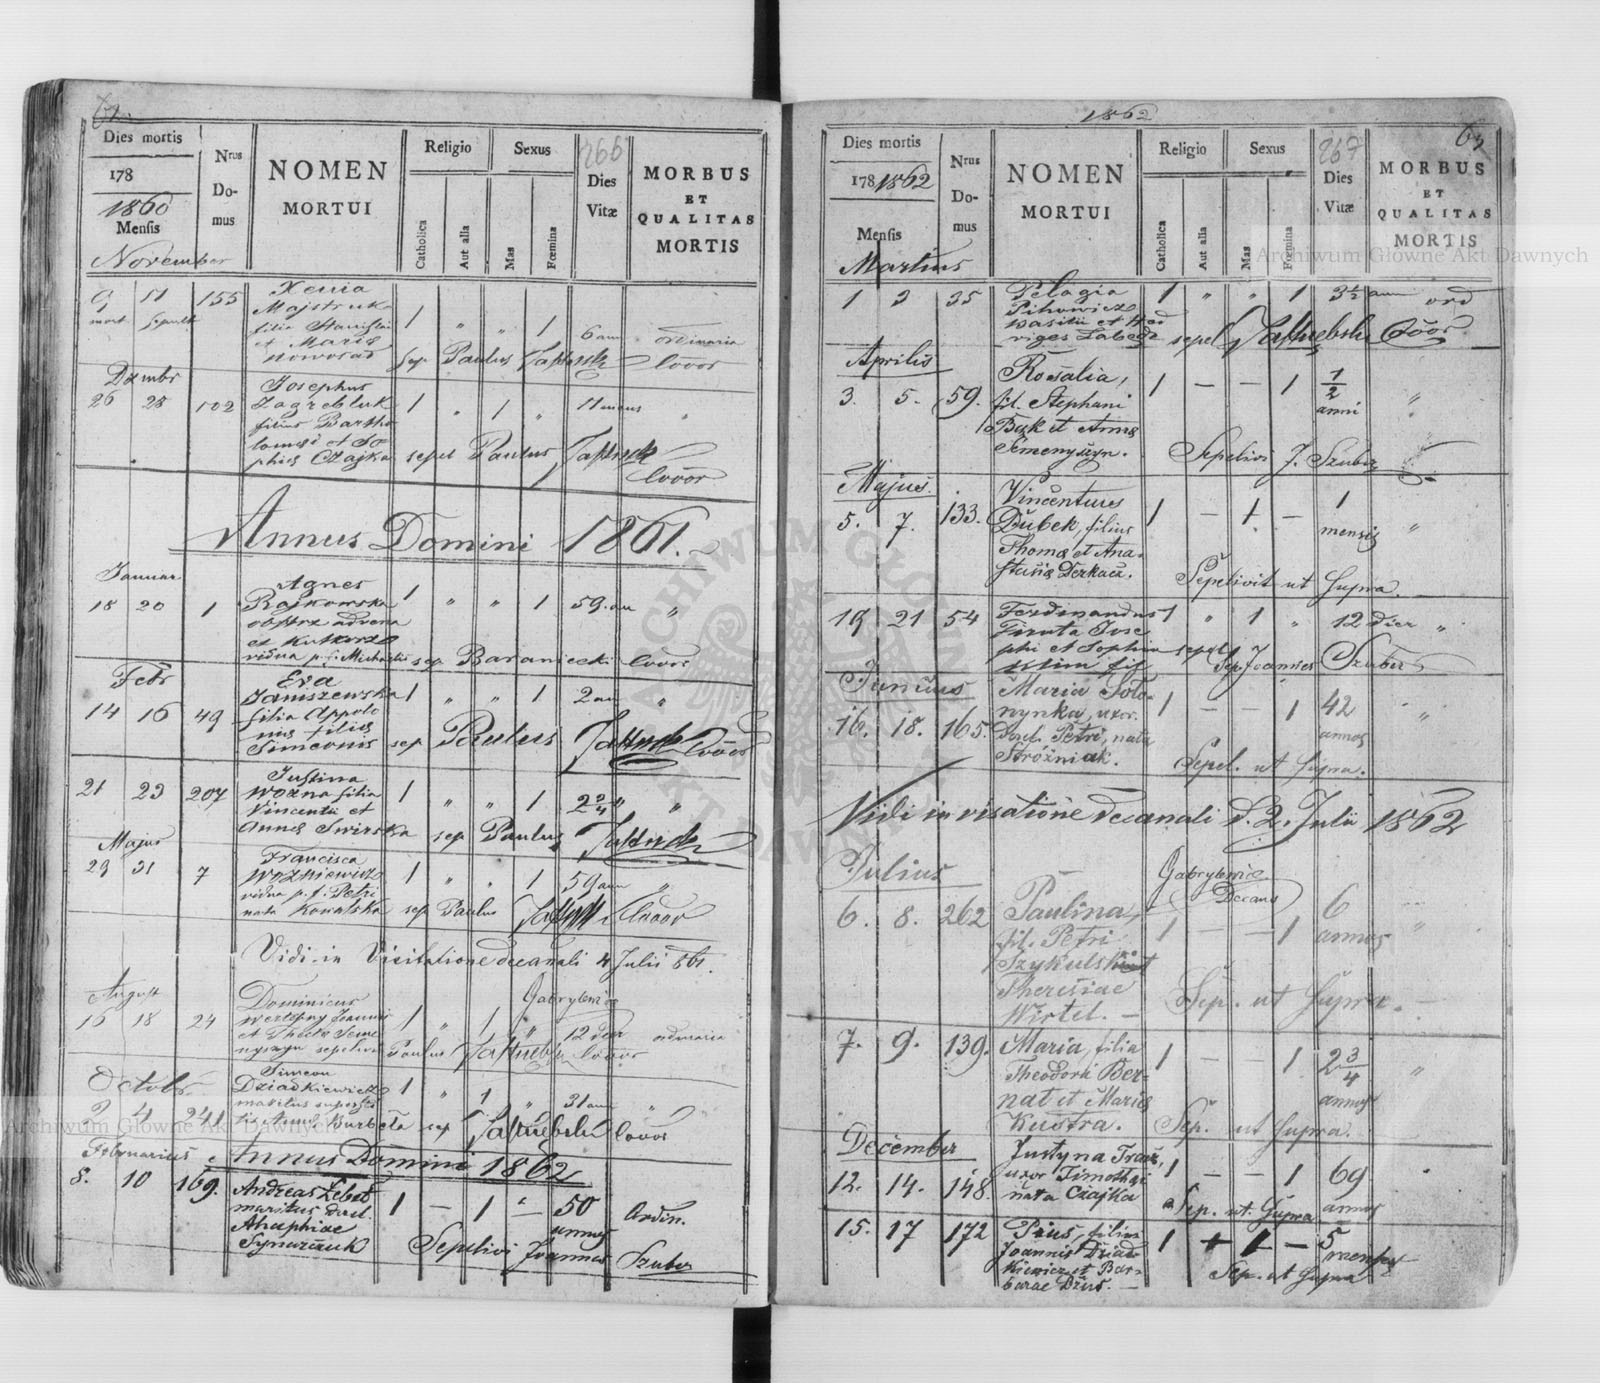 62.
Dies mortis
178
1860
Mensis
November
Nrus
Do-
mus
NOMEN
MORTUI
Religio
Catholica
Aut alia
Sexus
Mas
Fœmina
266
Dies
Vitæ
MORBUS
ET
QUALITAS
MORTIS
9 11 155 Xenia 1 " " 1 6 ann ordinaria
mort sepult Majstruk
filia Stanislai
et Maria
Nowosad sep Paulus coöor
Dzmbr
26 28 102 Josephus 1 " 1 " 11 mens "
Zagrebluk
filius Bartho
lomei et So
phies Czajka sepel Paulus
coöor
Annus Domini 1861.
Januar
18 20 1 Agnes 1 " " 1 59 an "
Rajkowska
advena
et
vidua p. f. Michaelis sep Baraniecki coöor
Febr
14 16 49 Eva 1 " " 1 2 an "
Janiszewska
filia Appolo
nies filies
Simeonis sep Paulus coöor
21 23 207 Justina 1 " " 1 2 2/4 " "
Wozna filia
Vincentii et
Annes Swirska sep Paulus
Majus
29 31 7 Francisca 1 " " 1 59 ann "
Wozniewicz
vidua p. f. Petri
nata Kowalska sep Paulus coöor
Vidi in Visitatione decanali 4 Julii 861.
Gabrylewicz
August
16 18 24 Dominicus 1 " 1 " 12 dier
Joannis
et
sepelivit Paulus coöor
Octobr
2 4 241 Simeon 1 " 1 " 31 ann "
Dziadkiewicz
maritus superstes
Burbeta sep coöor
Februarius Annus Domini 1862
8. 10 169. Andreas 1 — 1 — 50 Ordin.
maritus annos
Ahaphiae
Synarczuk Sepelivi Joannes Szuber
1862
63
Dies mortis
178 1862
Mensis
Martius
Nrus
Do-
mus
NOMEN
MORTUI
Religio
Catholica
Aut alia
Sexus
Mas
Fœmina
267
Dies
Vitæ
MORBUS
ET
QUALITAS
MORTIS
1 3 35 Pelagia 1 " " 1 3½ ann ord
Pihowicz
Wasilii et Hed
viges sepel Coöor
Aprilis
3. 5. 59. Rosalia, 1 — — 1 1/2 "
fil. Stephani anni
Bąk et Annes
Semenyszyn. Sepelivi J. Szuber
Majus.
5. 7. 133. Vincentius 1 — 1. — 1 "
Dubek, filius mensis
Thomæ et Ana-
stasiæ Derkacz. Sepelivit ut supra.
19 21 54 Ferdinandus 1 " 1 " 12 dier "
Jose
phi et Sophia sepel
Sep. Joannes Szuber
Junius
16. 18. 165. Maria Soto- 1 — — 1 42 "
nynka, uxor. annos
Petri, nata
Stróżniak. Sepel. ut supra.
Vidi in visatione decanali d. 2. Julii 1862
Gabrylewicz
Decanus
Julius
6. 8. 262 Paulina, 1 — — 1 6 "
fil. Petri annos
Szykulski et
Theresiae
Wirtel. — Sep. ut supra. —
7. 9. 139. Maria, filia 1 — 1 2 3/4 "
Theodori Ber- annos
nat et Mariæ
Kustra. Sep. ut supra.
December
12. 14. 148. Justyna Tracz, 1 — — 1 69
uxor Timothei annos
nata Czajka Sep. ut. supra
15. 17 172 Pius, filius 1 + 1 — 5
Joannis Dziad- menses
kiewicz et Bar-
barae Dżus. — Sep. ut supra
Archiwum Główne Akt Dawnych
Archiwum Główne Akt Dawnych
ARCHIWUM GŁÓWNE AKT DAWNYCH